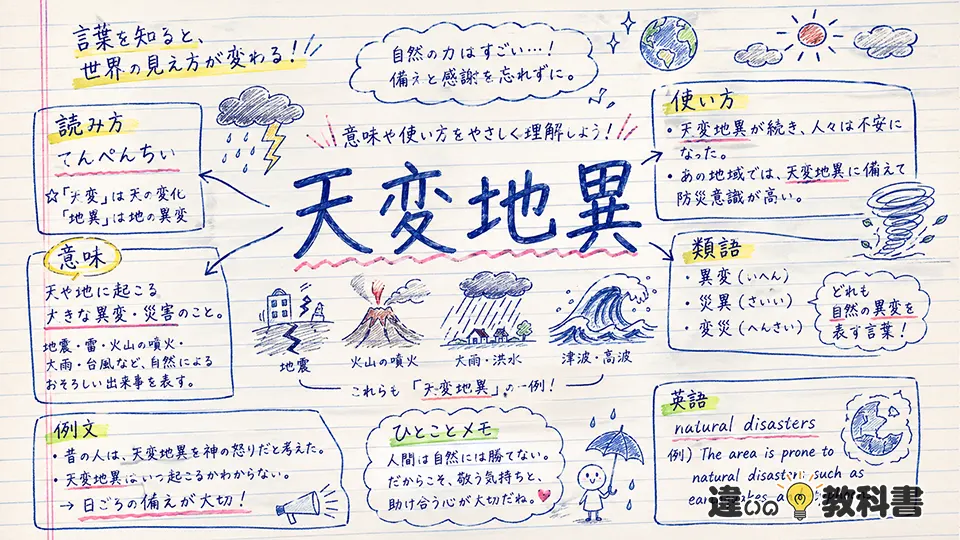 言葉を知ると、
世界の見え方が変わる！
自然の力はすごい…！
備えと感謝を忘れずに。
意味や使い方をやさしく理解しよう！
天変地異
読み方
てんぺんちい
☆「天変」は天の変化
「地異」は地の異変
意味
天や地に起こる
大きな異変・災害のこと。
地震・雷・火山の噴火・
大雨・台風など、自然による
おそろしい出来事を表す。
使い方
・天変地異が続き、人々は不安に
なった。
・あの地域では、天変地異に備えて
防災意識が高い。
類語
・異変（いへん）
・災異（さいい）
・変災（へんさい）
どれも
自然の異変を
表す言葉！
地震
火山の噴火
大雨・洪水
津波・高波
これらも「天変地異」の一例！
例文
・昔の人は、天変地異を神の怒りだと考えた。
・天変地異はいつ起こるかわからない。
→ 日ごろの備えが大切！
ひとことメモ
人間は自然には勝てない。
だからこそ、敬う気持ちと、
助け合う心が大切だね。
英語
natural disasters
例）The area is prone to
natural disasters, such as
違いの教科書